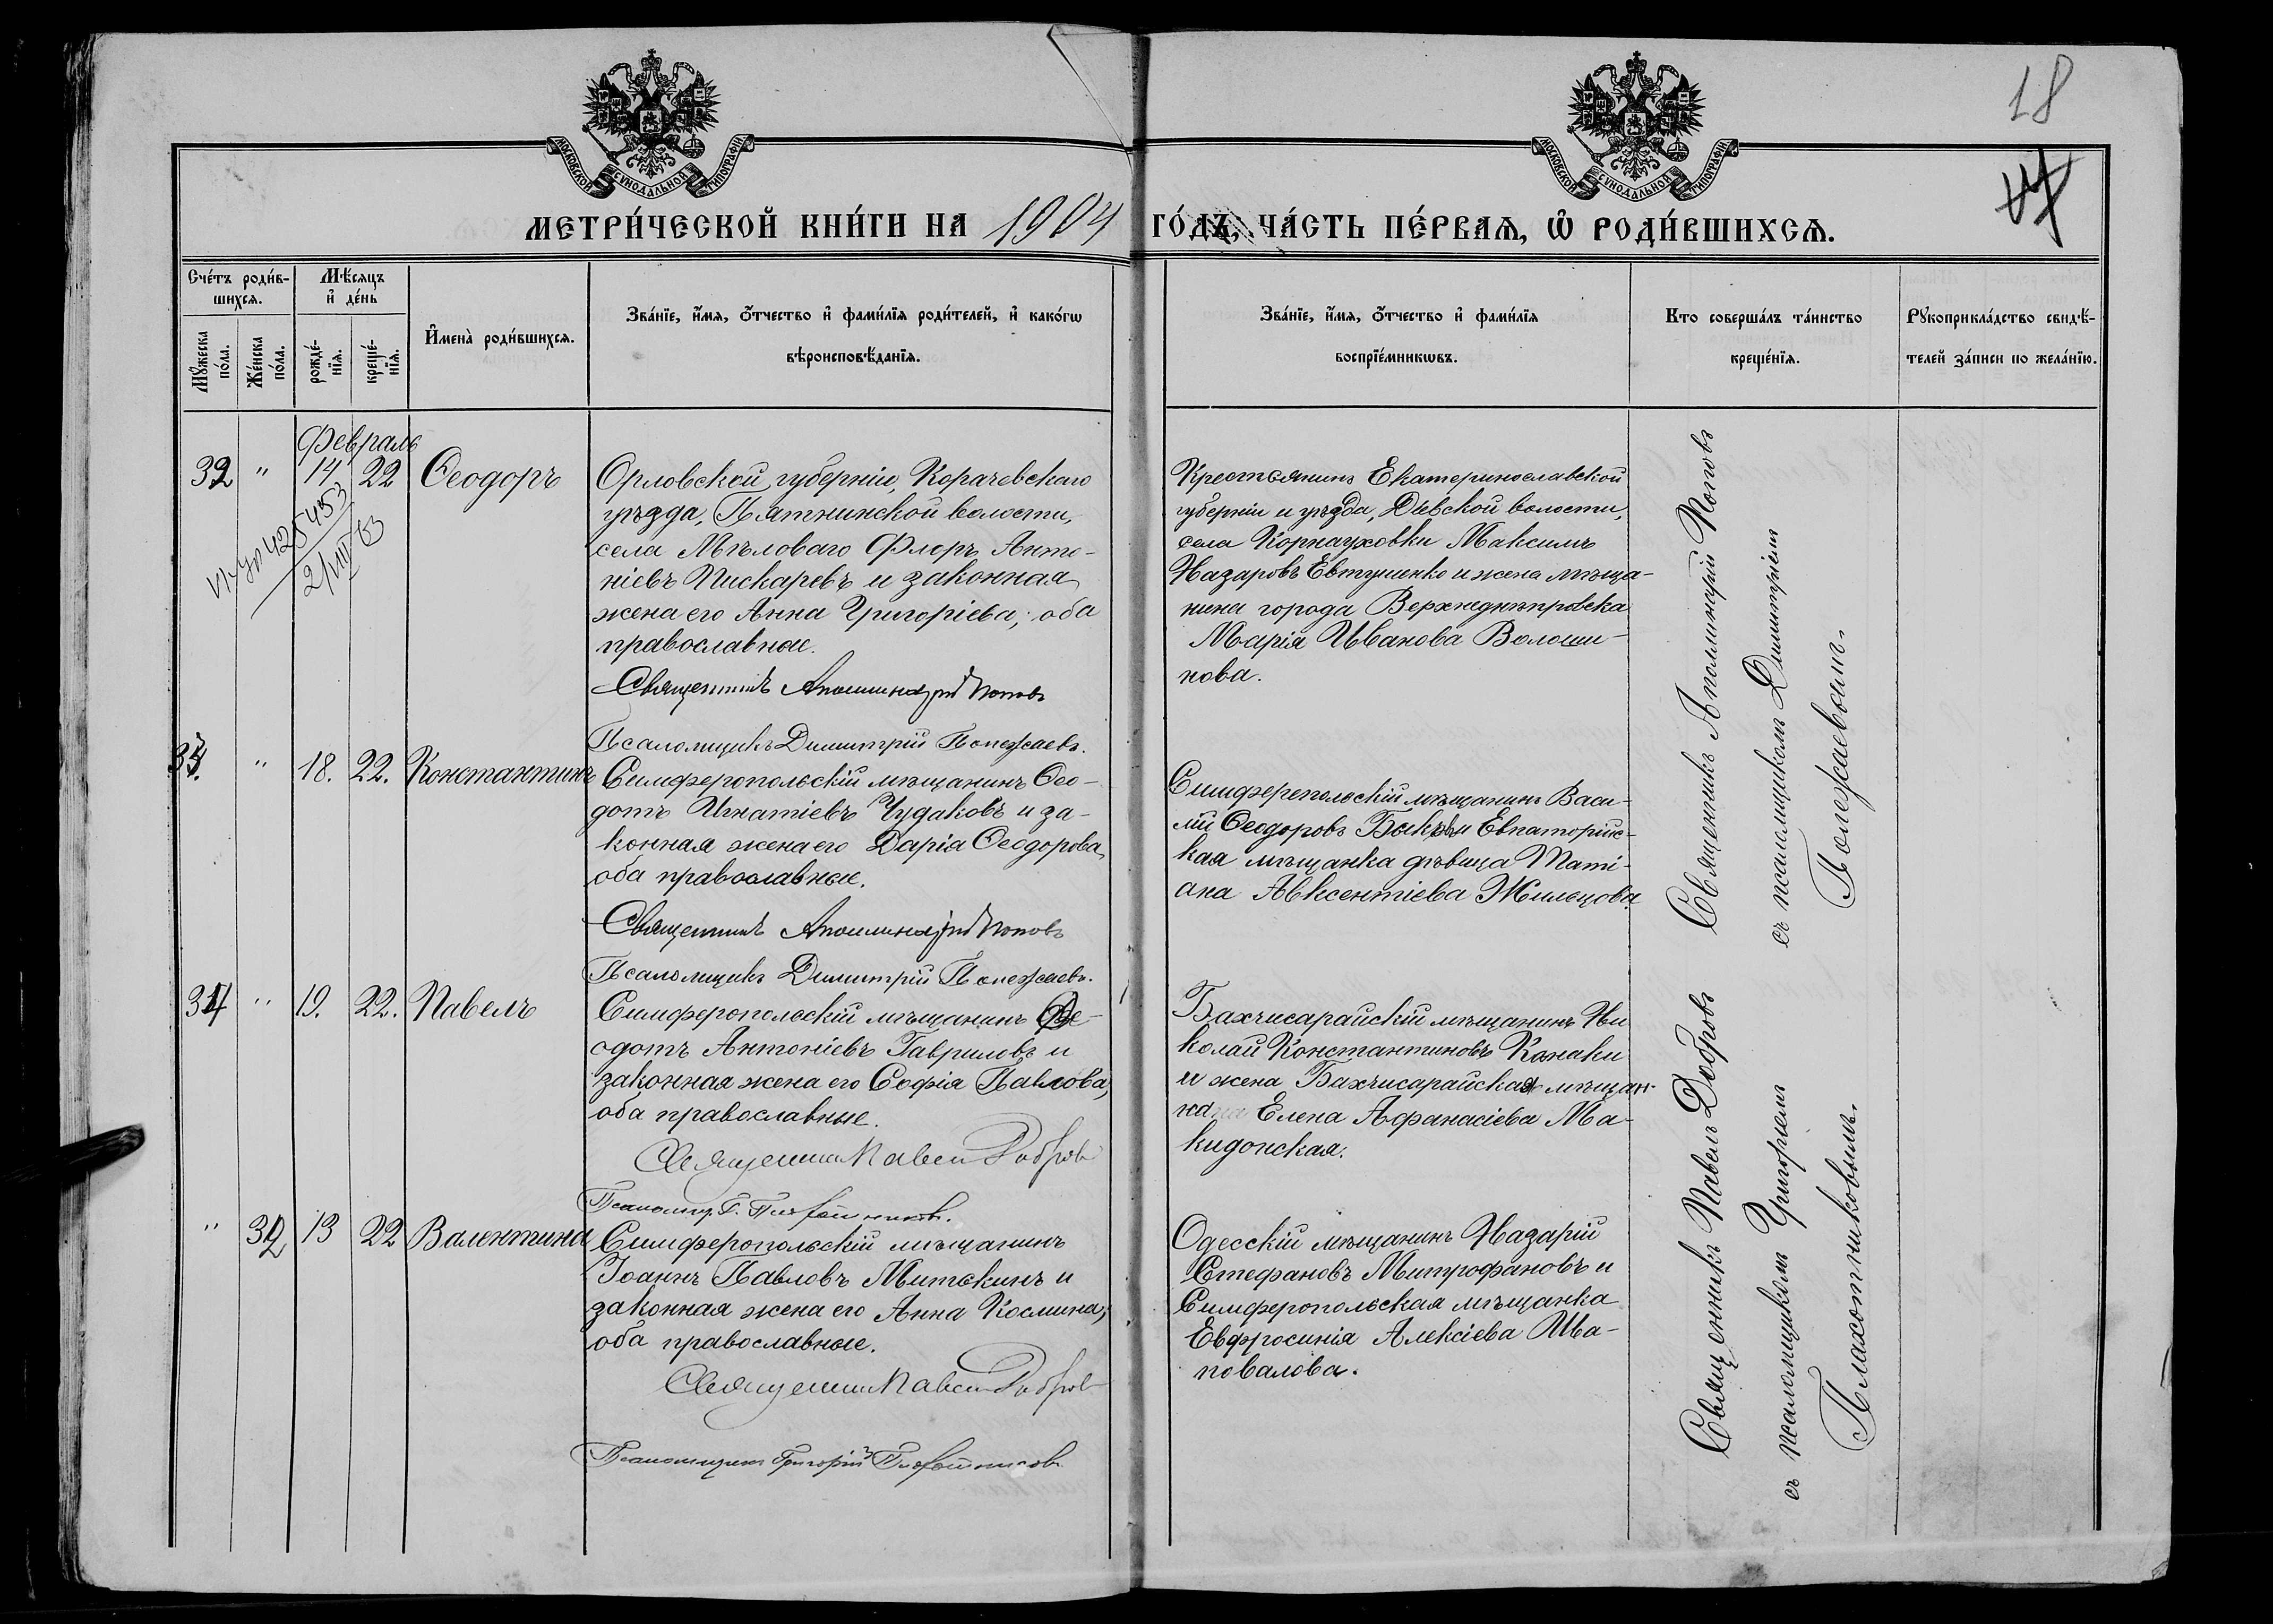 18
17
МОСКОВСКОЙ СѴНОДАЛЬНОЙ ТИПОГРАФІИ
МОСКОВСКОЙ СѴНОДАЛЬНОЙ ТИПОГРАФІИ
МЕТРИ́ЧЕСКОЙ КНИ́ГИ НА 1904 ГО́ДЪ, ЧА́СТЬ ПЕ́РВАѦ, Ѡ҆ РОДИ́ВШИХСѦ.
Сче́тъ роди́в-
шихсѧ.
Мѣ́сяцъ
и҆ де́нь
Мꙋ́жеска
по́ла.
Же́нска
по́ла.
рожде́-
нїѧ.
креще́-
нїѧ.
И҆мена̀ роди́вшихсѧ.
Зва́нїе, и҆́мѧ, ѻ҆́тчество и҆ фами́лїѧ роди́телей, и҆ како́гѡ
вѣроисповѣ́данїѧ.
Зва́нїе, и҆́мѧ, ѻ҆́тчество и҆ фами́лїѧ
воспрїе́мникѡвъ.
Кто соверша́лъ та́инство
креще́нїѧ.
Рꙋкоприкла́дство свидѣ́-
телей за́писи по жела́нїю.
Февраль
32 " 14 22 Ѳеодоръ
425453
2/VIII 63
Орловской губерніи, Корачевскаго
уѣзда, Пятнинской волости,
села Мѣловаго Флоръ Анто-
ніевъ Пискаревъ и законная
жена его Анна Григоріева, оба
православные.
Священникъ Аполлинарій Поповъ
Псаломщикъ Димитрій Полежаевъ.
Крестьянинъ Екатеринославской
губерніи и уѣзда, Діевской волости,
села Корнауховки Максимъ
Назаровъ Евтушенко и жена мѣща-
нина города Верхнеднѣпровска
Марія Иванова Волоши-
нова.
Священникъ Аполлинарій Поповъ
съ псаломщикомъ Димитріемъ
Полежаевымъ.
33. " 18. 22. Константинъ
Симферопольскій мѣщанинъ Ѳео-
дотъ Игнатіевъ Чудаковъ и за-
конная жена его Дарія Ѳеодорова,
оба православные.
Священникъ Аполлинарій Поповъ
Псаломщикъ Димитрій Полежаевъ.
Симферопольскій мѣщанинъ Васи-
лій Ѳеодоровъ и Евпаторійс-
кая мѣщанка дѣвица Таті-
ана Авксентіева Жильцова.
34 " 19. 22. Павелъ
Симферопольскій мѣщанинъ Ѳе-
одотъ Антоніевъ Гавриловъ и
законная жена его Софія Павлова,
оба православные.
Священникъ Павелъ Добровъ
Псаломщ. Г. Плахотниковъ.
Бахчисарайскій мѣщанинъ Ни
колай Константиновъ Канаки
и жена Бахчисарайская мѣщан-
ка Елена Афанасіева Ма-
кидонская.
Священникъ Павелъ Добровъ
съ псаломщикомъ Григоріемъ
Плахотниковымъ.
" 32 13 22 Валентина
Симферопольскій мѣщанинъ
Іоаннъ Павловъ Митькинъ и
законная жена его Анна Космина,
оба православные.
Священникъ Павелъ Добровъ
Псаломщикъ Григорій Плахотниковъ
Одесскій мѣщанинъ Назарій
Стефановъ Митрофановъ и
Симферопольская мѣщанка
Евфросинія Алексіева Ша-
повалова.